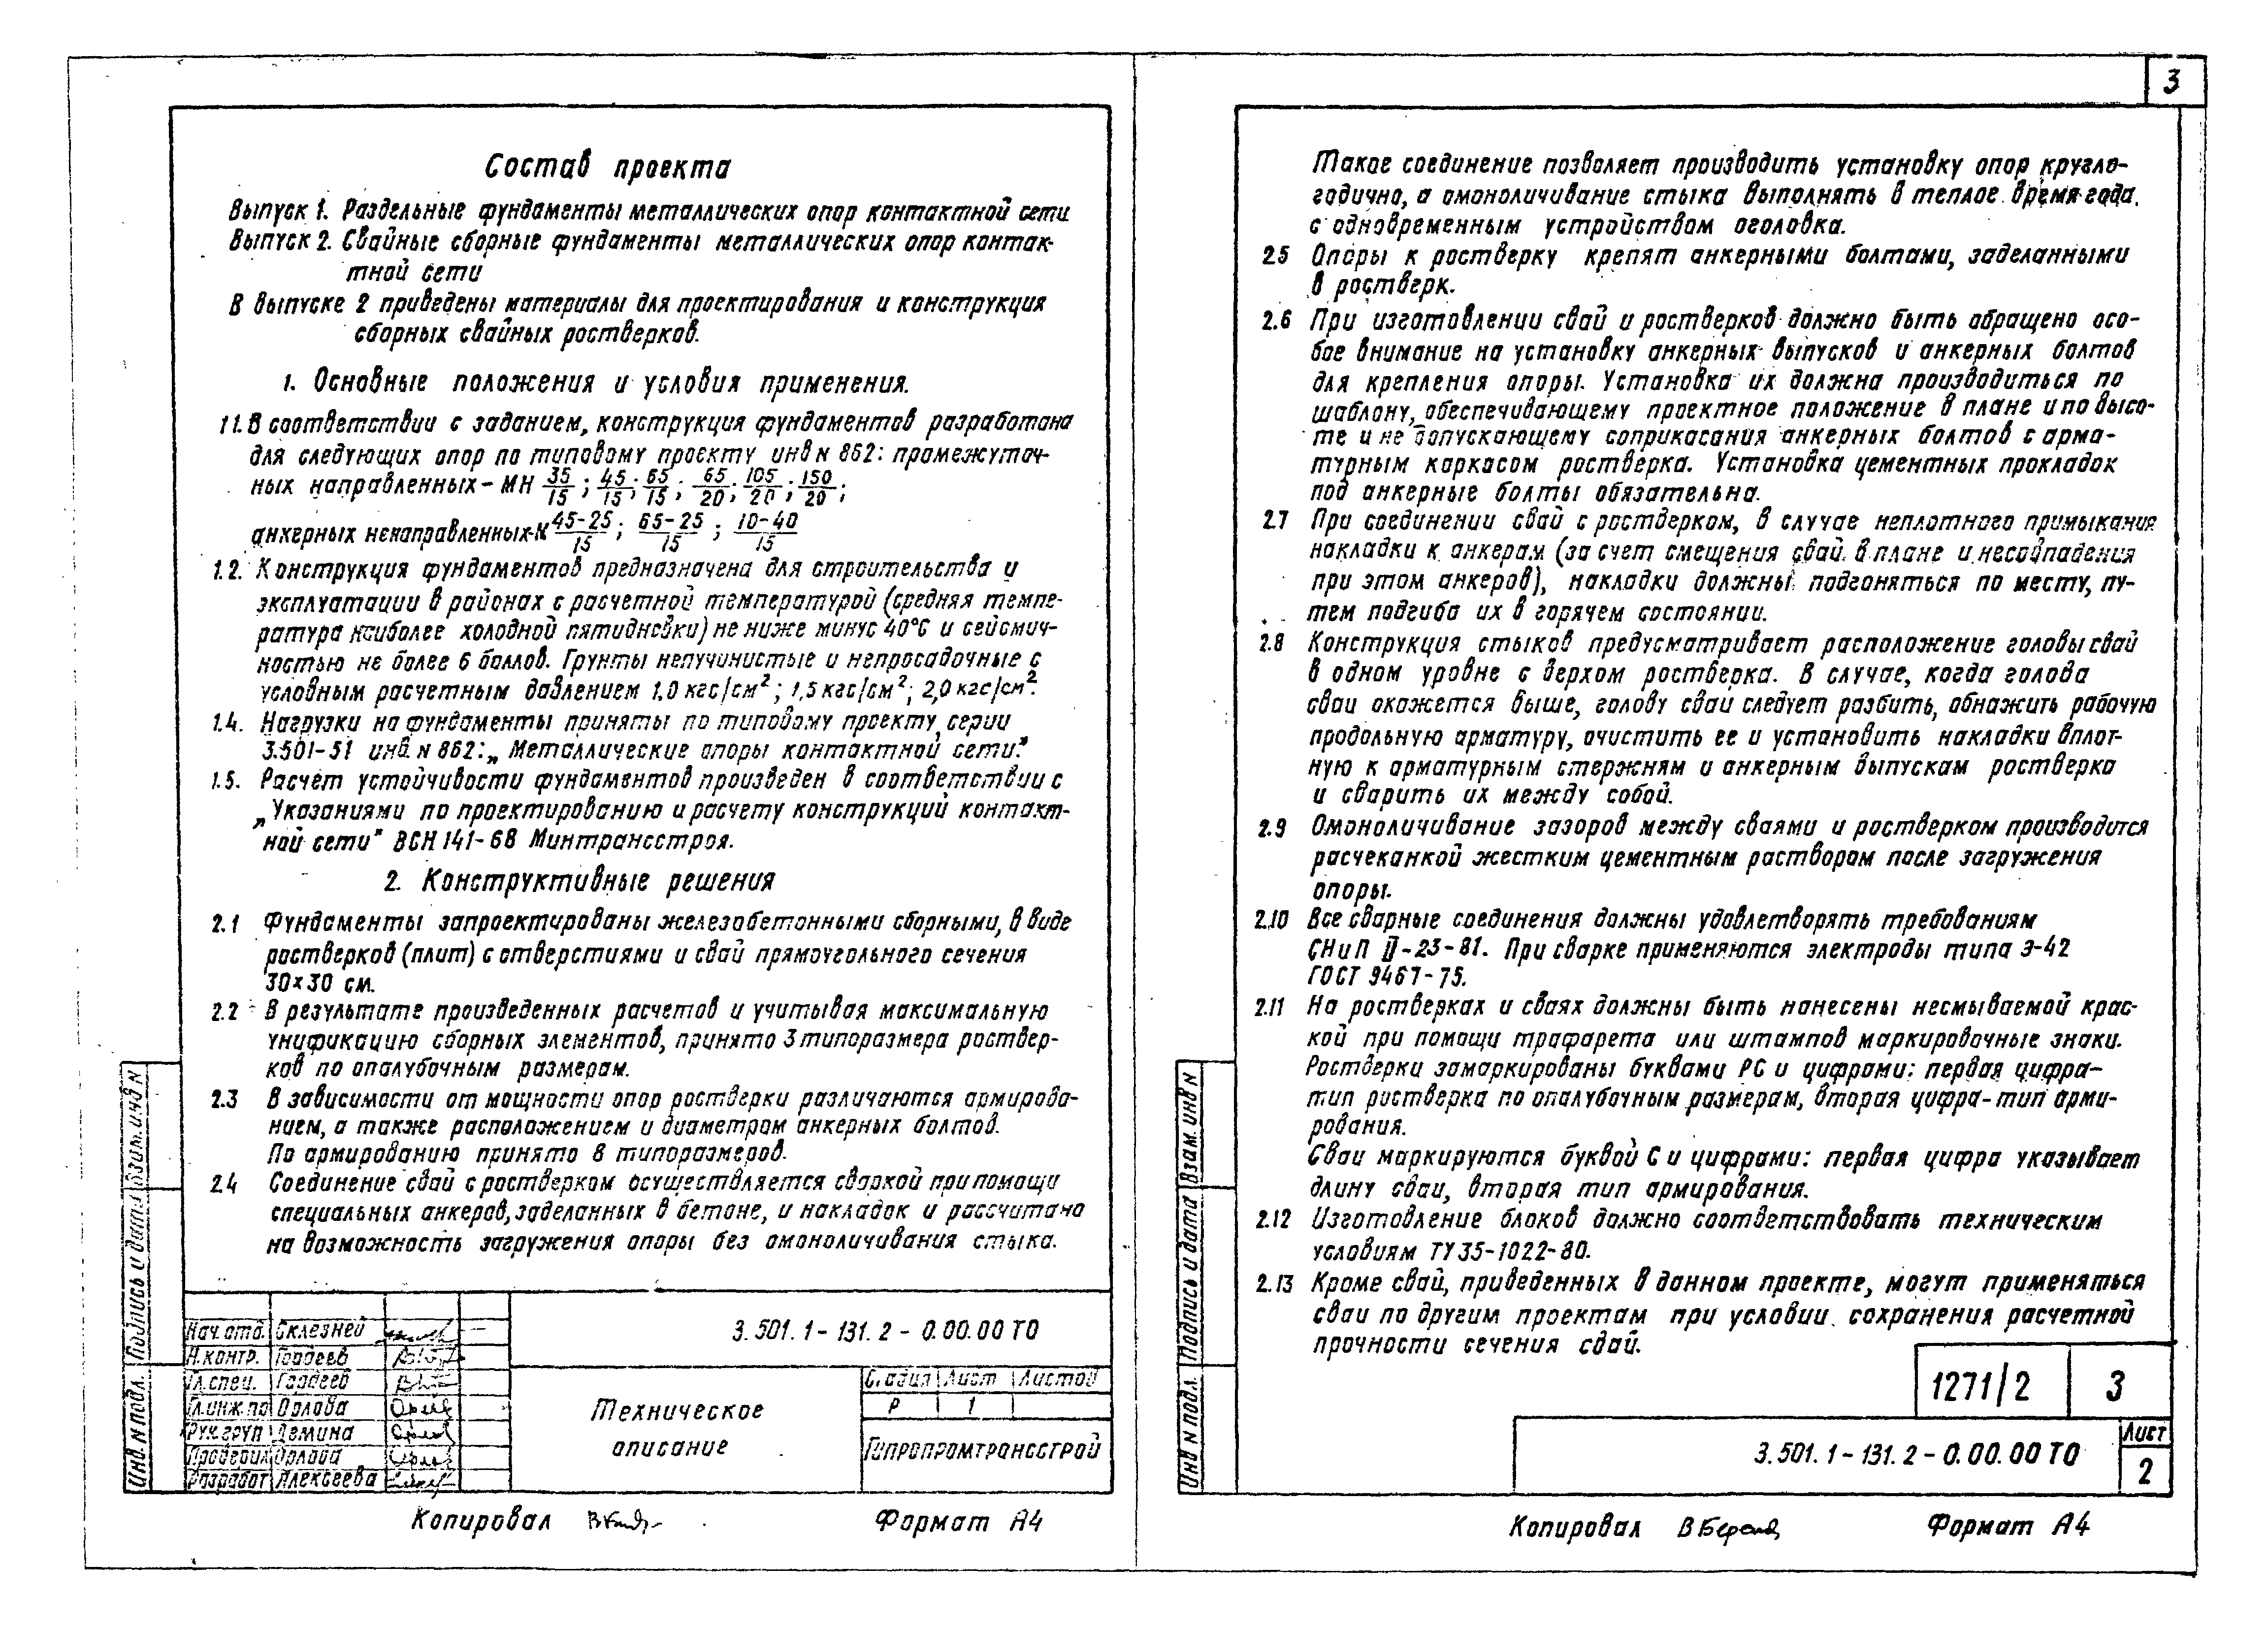 3
Состав проекта
Выпуск 1. Раздельные фундаменты металлических опор контактной сети
Выпуск 2. Свайные сборные фундаменты металлических опор контак-
тной сети
В выпуске 2 приведены материалы для проектирования и конструкция
сборных свайных ростверков.
1. Основные положения и условия применения.
1.1. В соответствии с заданием, конструкция фундаментов разработана
для следующих опор по типовому проекту инв N 862: промежуточ-
ных направленных - МН 35/15; 45/15; 65/15; 65/20; 105/20; 150/20;
анкерных ненаправленных-М 45-25/15; 65-25/15; 10-40/15
1.2. Конструкция фундаментов предназначена для строительства и
эксплуатации в районах с расчетной температурой (средняя темпе-
ратура наиболее холодной пятидневки) не ниже минус 40°С и сейсмич-
ностью не более 6 баллов. Грунты непучинистые и непросадочные с
условным расчетным давлением 1,0 кгс/см²; 1,5 кгс/см²; 2,0 кгс/см².
1.4. Нагрузки на фундаменты приняты по типовому проекту серии
3.501-51 инв. N 862: „Металлические опоры контактной сети."
1.5. Расчет устойчивости фундаментов произведен в соответствии с
„Указаниями по проектированию и расчету конструкций контакт-
ной сети" ВСН 141-68 Минтрансстроя.
2. Конструктивные решения
2.1 Фундаменты запроектированы железобетонными сборными, в виде
ростверков (плит) с отверстиями и свай прямоугольного сечения
30×30 см.
2.2 В результате произведенных расчетов и учитывая максимальную
унификацию сборных элементов, принято 3 типоразмера роствер-
ков по опалубочным размерам.
2.3 В зависимости от мощности опор ростверки различаются армирова-
нием, а также расположением и диаметром анкерных болтов.
По армированию принято 8 типоразмеров.
2.4 Соединение свай с ростверком осуществляется сваркой при помощи
специальных анкеров, заделанных в бетоне, и накладок и рассчитано
на возможность загружения опоры без омоноличивания стыка.
Нач. отд. Склезней
Н. контр. Гордеев
Гл. спец. Гордеев
Гл. инж. по Орлова
Рук. груп Демина
Проверил Орлова
Разработ Алексеева
3.501.1-131.2-0.00.00 ТО
Техническое
описание
Стадия Лист Листов
Р 1
Гипропромтрансстрой
Взам. инв N
Подпись и дата
Инв. N подл.
Копировал
Формат А4
Такое соединение позволяет производить установку опор кругло-
годично, а омоноличивание стыка выполнять в теплое время года
с одновременным устройством оголовка.
2.5 Опоры к ростверку крепят анкерными болтами, заделанными
в ростверк.
2.6 При изготовлении свай и ростверков должно быть обращено осо-
бое внимание на установку анкерных выпусков и анкерных болтов
для крепления опоры. Установка их должна производиться по
шаблону, обеспечивающему проектное положение в плане и по высо-
те и не допускающему соприкасания анкерных болтов с арма-
турным каркасом ростверка. Установка цементных прокладок
под анкерные болты обязательна.
2.7 При соединении свай с ростверком, в случае неплотного примыкания
накладки к анкерам (за счет смещения свай в плане и несовпадения
при этом анкеров), накладки должны подгоняться по месту, пу-
тем подгиба их в горячем состоянии.
2.8 Конструкция стыков предусматривает расположение головы свай
в одном уровне с верхом ростверка. В случае, когда голова
сваи окажется выше, голову сваи следует разбить, обнажить рабочую
продольную арматуру, очистить ее и установить накладки вплот-
ную к арматурным стержням и анкерным выпускам ростверка
и сварить их между собой.
2.9 Омоноличивание зазоров между сваями и ростверком производится
расчеканкой жестким цементным раствором после загружения
опоры.
2.10 Все сварные соединения должны удовлетворять требованиям
СНиП II-23-81. При сварке применяются электроды типа Э-42
ГОСТ 9467-75.
2.11 На ростверках и сваях должны быть нанесены несмываемой крас-
кой при помощи трафарета или штампов маркировочные знаки.
Ростверки замаркированы буквами РС и цифрами: первая цифра-
тип ростверка по опалубочным размерам, вторая цифра-тип арми-
рования.
Сваи маркируются буквой С и цифрами: первая цифра указывает
длину сваи, вторая тип армирования.
2.12 Изготовление блоков должно соответствовать техническим
условиям ТУ 35-1022-80.
2.13 Кроме свай, приведенных в данном проекте, могут применяться
сваи по другим проектам при условии сохранения расчетной
прочности сечения свай.
1271/2 3
3.501.1-131.2-0.00.00 ТО
Лист
2
Взам. инв N
Подпись и дата
Инв N подл.
Копировал
Формат А4